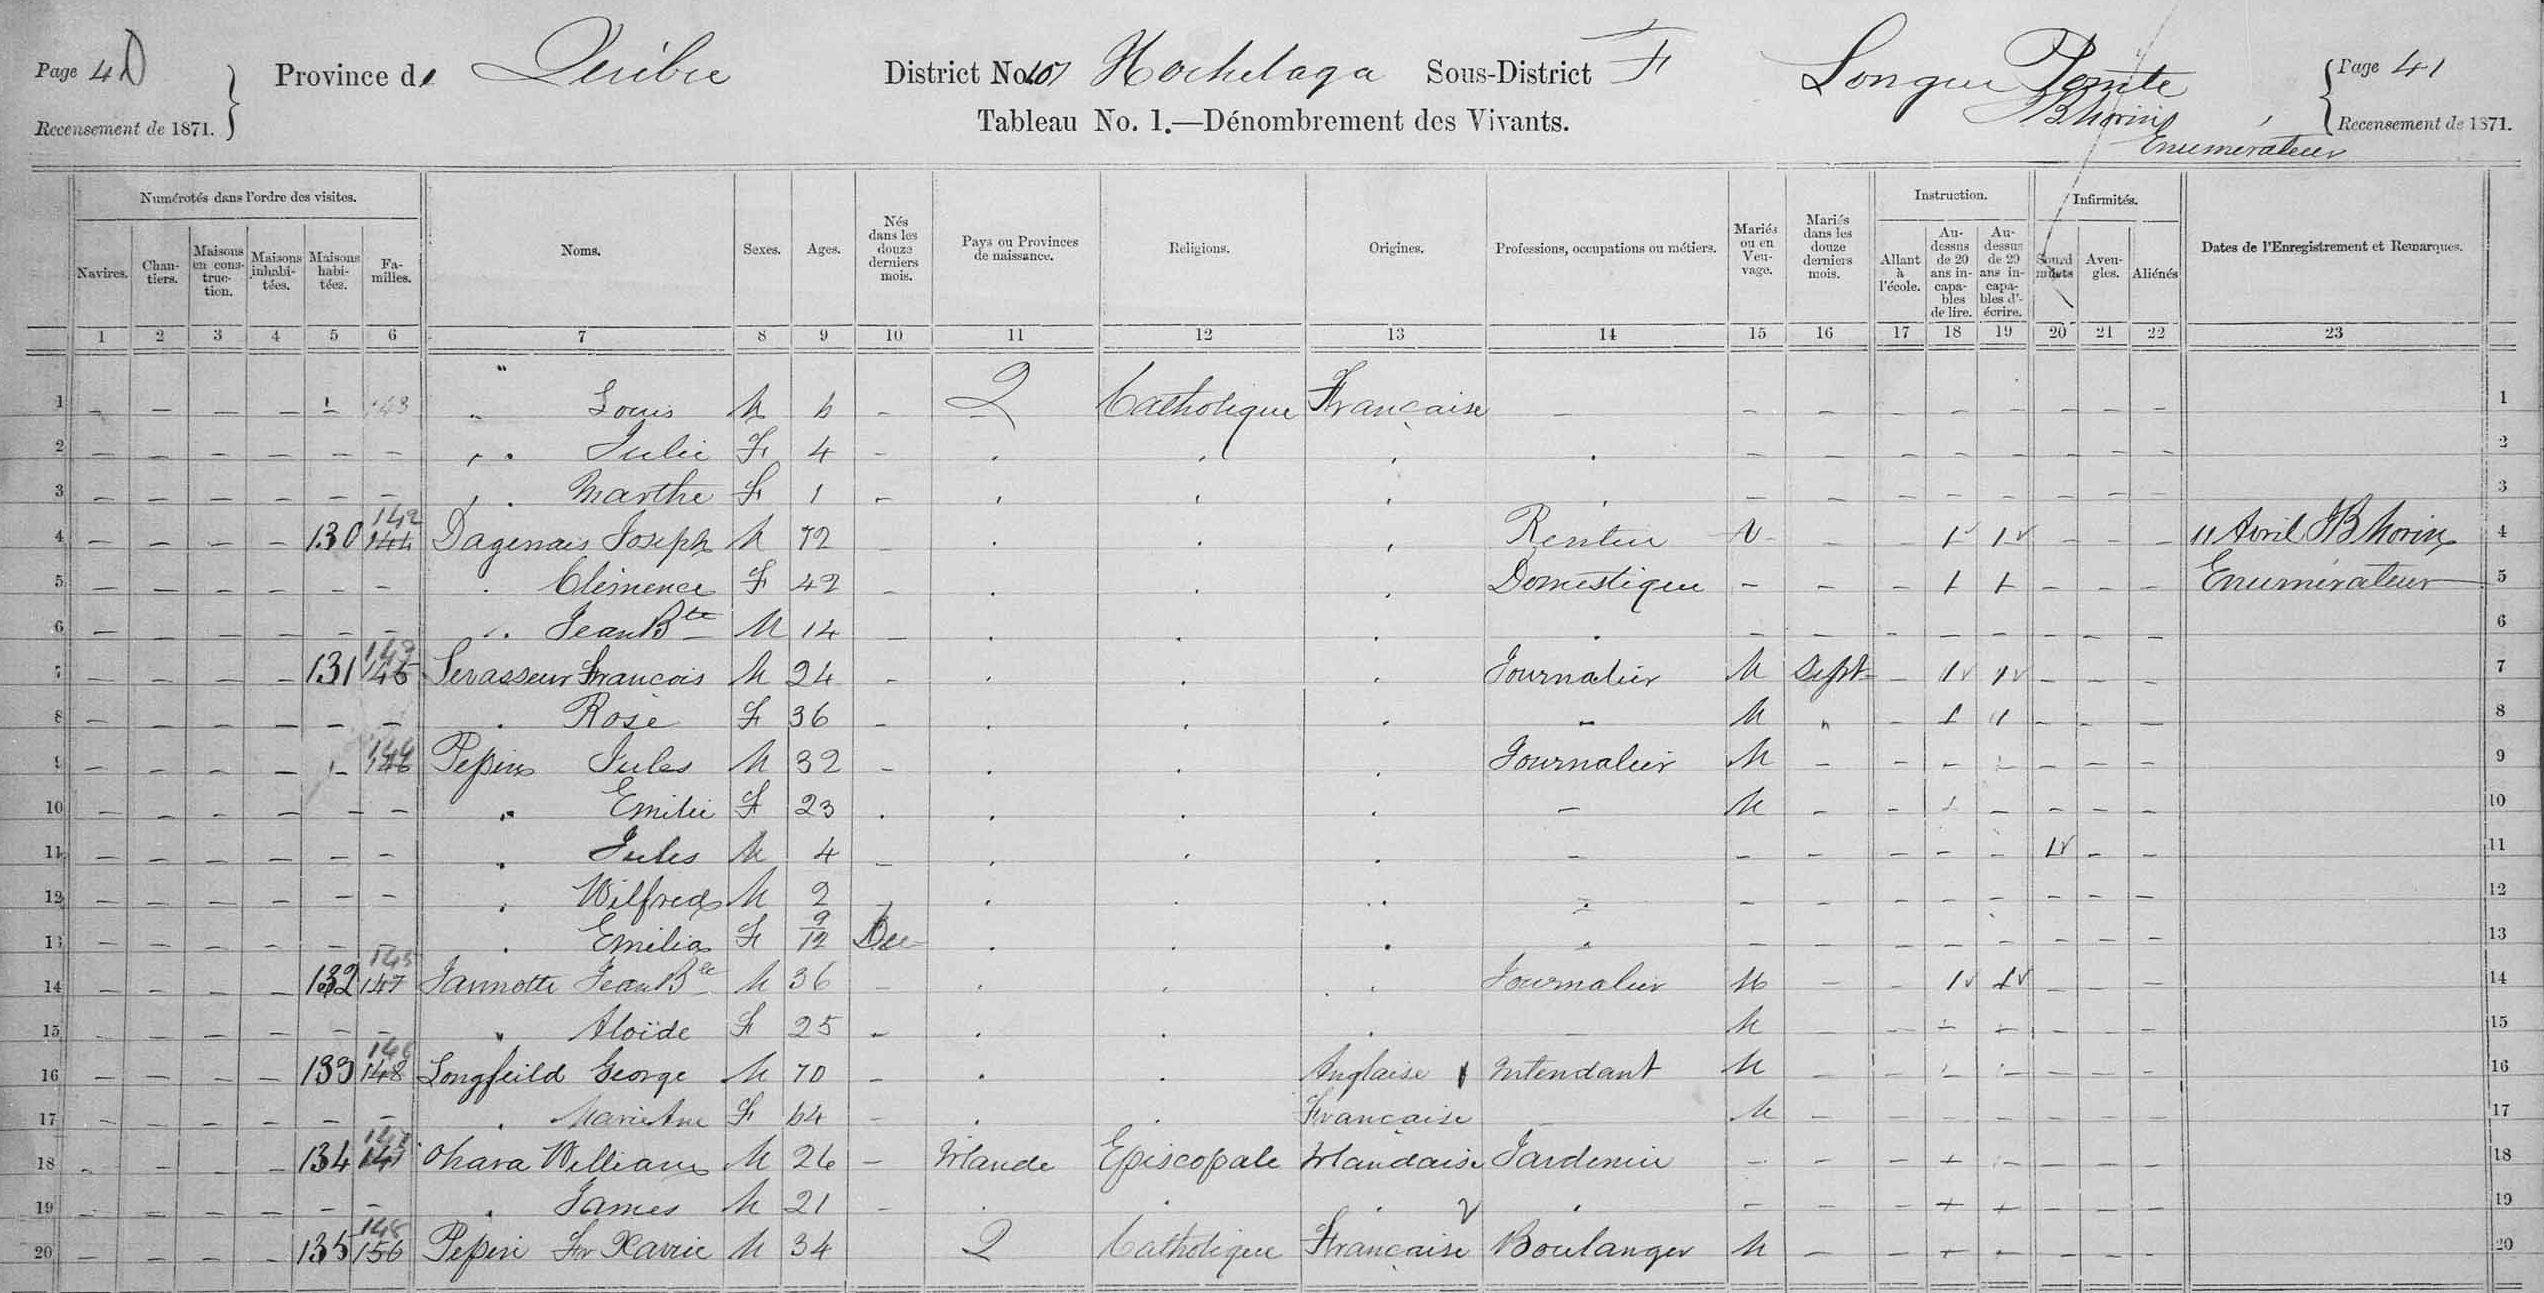 Page 40 Province de Québec District No. 107 Hochelaga Sous-District F Longue Pointe Page 41
Recensement de 1871. Tableau No. 1.—Dénombrement des Vivants. JB Morin Recensement de 1871.
Enumérateur
Numérotés dans l'ordre des visites. Instruction. Infirmités.
Navires. Chantiers. Maisons en construction. Maisons inhabitées. Maisons habitées. Familles. Noms. Sexes. Ages. Nés dans les douze derniers mois. Pays ou Provinces de naissance. Religions. Origines. Professions, occupations ou métiers. Mariés ou en Veuvage. Mariés dans les douze derniers mois. Allant à l'école. Au-dessus de 20 ans incapables de lire. Au-dessus de 20 ans incapables d'écrire. Sourd muets Aveugles. Aliénés Dates de l'Enregistrement et Remarques.
1 2 3 4 5 6 7 8 9 10 11 12 13 14 15 16 17 18 19 20 21 22 23
"
1 – – – – – 143 " Louis M 6 – Q Catholique Française – – – – – – – – – 1
2 – – – – – – " Julie F 4 – . . . . – – – – – – – – 2
3 – – – – – – " Marthe F 1 – . . . . – – – – – – – – 3
4 – – – – 130 142 144 Dagenais Joseph M 72 – . . . Rentier V – – 1 1 – – – 11 Avril JB Morin 4
5 – – – – – – . Clémence F 42 – . . . Domestique – – – 1 1 – – – Enumérateur 5
6 – – – – – – " Jean Bte M 14 – . . . . – – – – – – – – 6
7 – – – – 131 143 145 Levasseur Francois M 24 – . . . Journalier M Sept – 1 1 – – – 7
8 – – – – – – . Rose F 36 – . . . – M " – 1 1 – – – 8
9 – – – – – 144 146 Pepin Jules M 32 – . . . Journalier M – – – – – – – 9
10 – – – – – – " Emilie F 23 . . . . – M – – 1 – – – – 10
11 – – – – – – . Jules M 4 – . . . – – – – – – 1 – – 11
12 – – – – – – . Wilfred M 2 – . . . – – – – – – – – – 12
13 – – – – – – . Emilia F 9/12 . . . . – – – – – – – – 13
14 – – – – 132 145 147 Jannotte Jean Bte M 36 – . . . Journalier M – – 1 1 – – – 14
15 – – – – – – " Aloïde F 25 – . . . – M – – – – – – – 15
16 – – – – 133 146 148 Longfeild George M 70 – . . Anglaise Intendant M – – – – – – – 16
17 – – – – – – . Marie Ane F 64 – . . Française – M – – – – – – – 17
18 – – – – 134 147 Ohara William M 26 – Irlande Episcopale Irlandaise Jardinier – – – – – – – – 18
19 – – – – – – . James M 21 – . . . . – – – – – – – – 19
20 – – – – 135 148 150 Pepin Fr Xavie M 34 Q Catholique Française Boulanger M – – – – – – – 20